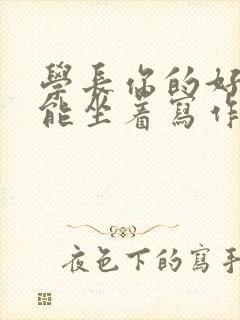 學長你的好
能坐着寫作
夜色下的寫手